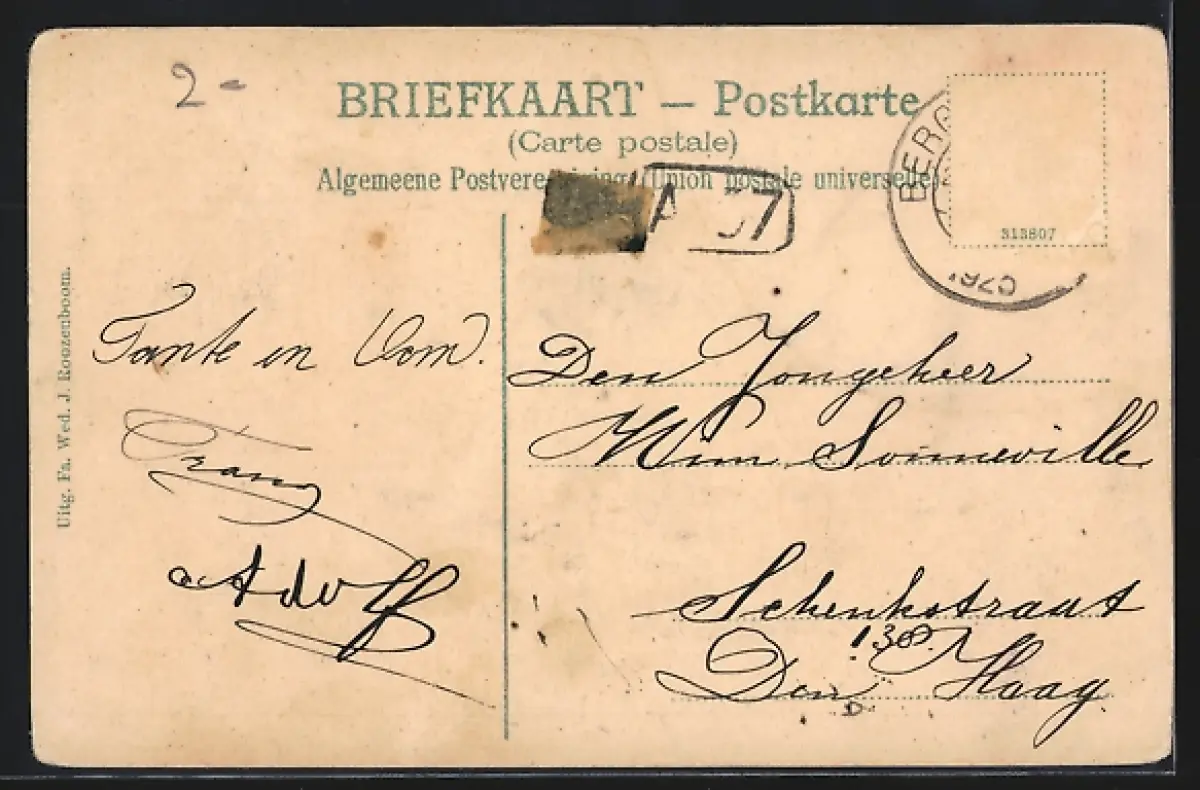 2-
BRIEFKAART — Postkarte
(Carte postale)
Algemeene Postvereeniging (Union postale universelle)
BERG
313807
A 37
Uitg. Fa. Wed. J. Roozenboom.
Tante en Oom.
Frans
Adolf
Den Jongeheer
Wim Sonneville
Schenkstraat
138.
Den Haag